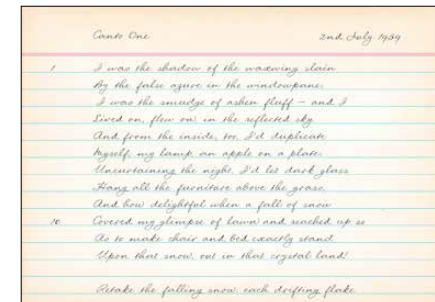 Canto One 2nd July 1959
1 I was the shadow of the waxwing slain
By the false azure in the windowpane;
I was the smudge of ashen fluff – and I
Lived on, flew on, in the reflected sky
And from the inside, too, I'd duplicate
Myself, my lamp, an apple on a plate:
Uncurtaining the night, I'd let dark glass
Hang all the furniture above the grass,
And how delightful when a fall of snow
10 Covered my glimpse of lawn and reached up so
As to make chair and bed exactly stand
Upon that snow, out in that crystal land!
Retake the falling snow: each drifting flake